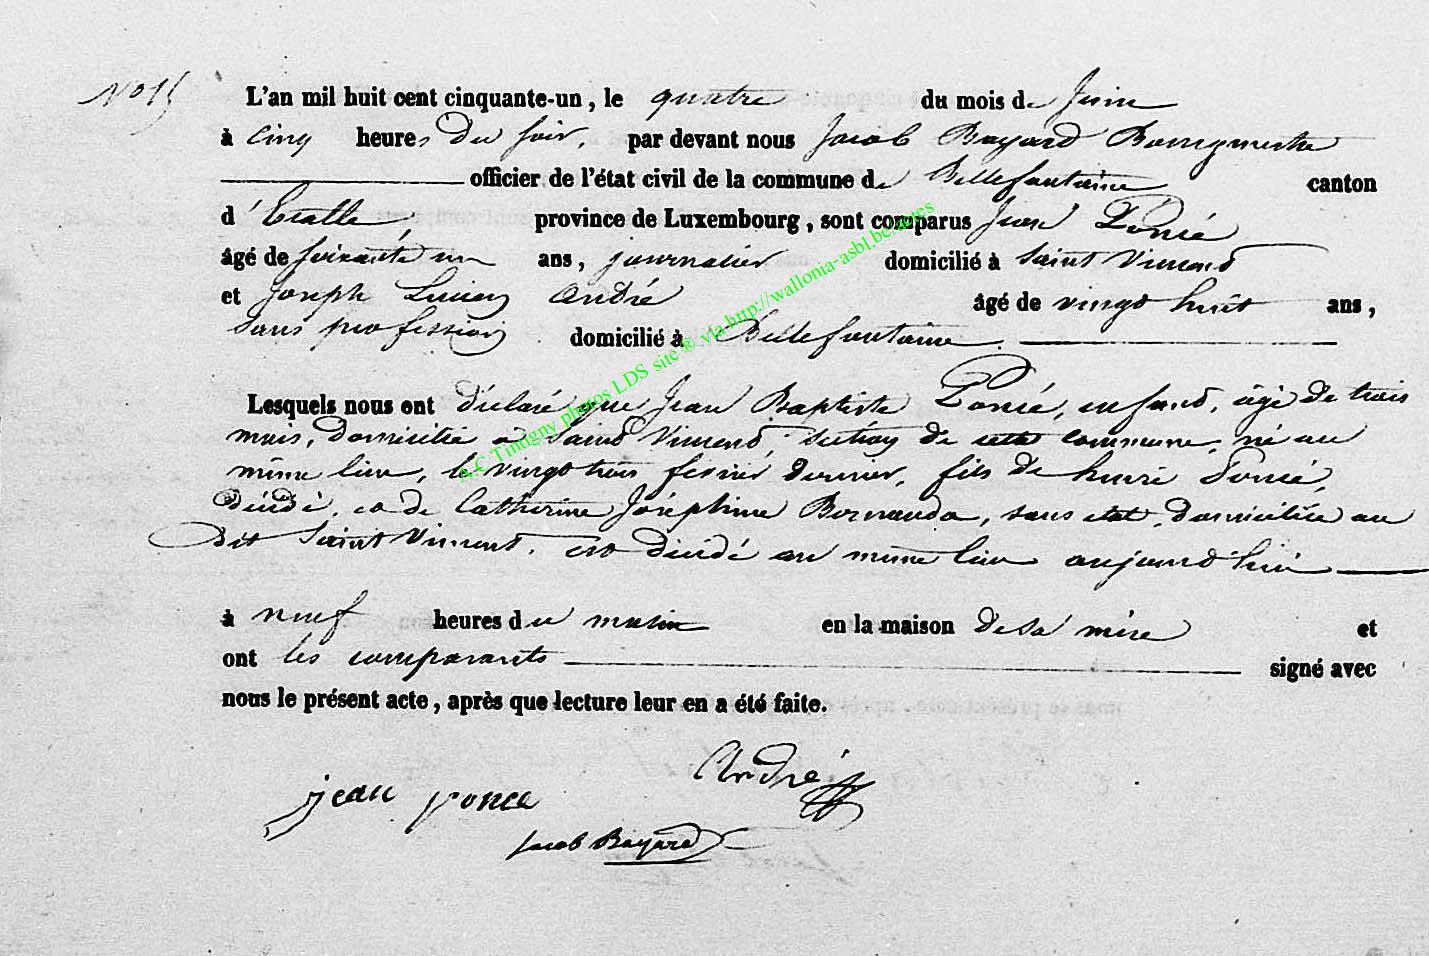 N° 15
L'an mil huit cent cinquante-un, le quatre du mois de Juin
à cinq heures du soir, par devant nous Jacob Bayard Bourgmestre
officier de l'état civil de la commune de Bellefontaine canton
d'Etalle, province de Luxembourg, sont comparus Jean Poncé
âgé de soixante un ans, journalier domicilié à Saint Vincent
et Joseph Lucien André âgé de vingt huit ans,
sans profession domicilié à Bellefontaine.
Lesquels nous ont déclaré que Jean Baptiste Poncé, enfant, âgé de trois
mois, domicilié à Saint Vincent, section de cette commune, né au
même lieu, le vingt trois fevrier dernier, fils de henri Poncé,
décédé, et de Catherine Joséphine, sans état, domiciliée au
dit Saint Vincent, est décédé au même lieu aujourd'hui
à neuf heures du matin en la maison de sa mère et
ont les comparants signé avec
nous le présent acte, après que lecture leur en a été faite.
André
jean ponce
Jacob Bayard
A.C Tintigny photos LDS site ® via http://wallonia-asbl.be/actes